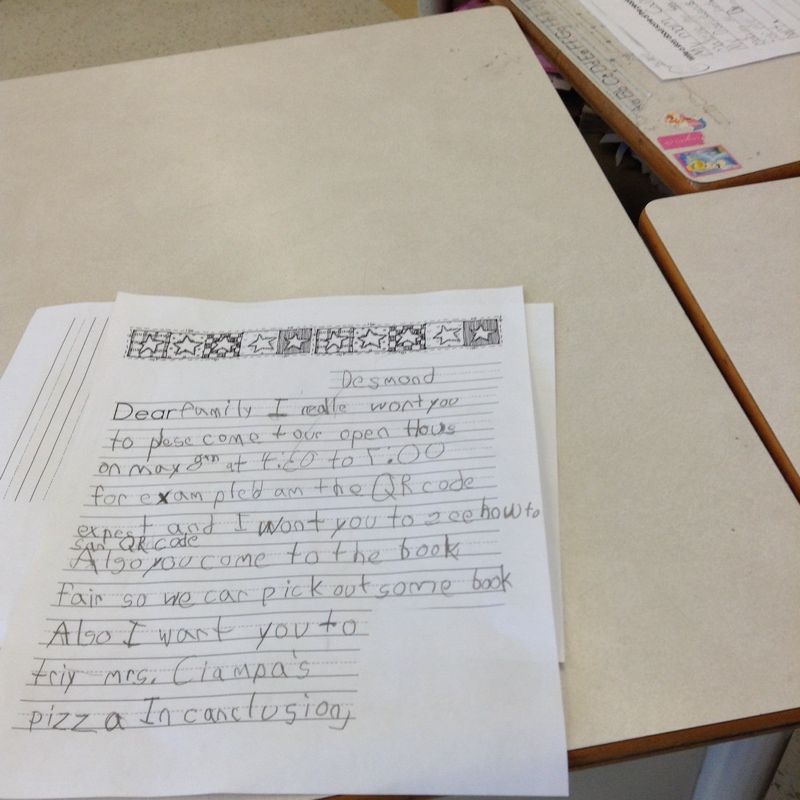 Desmond
Dear family I realle wont you
to plese come to our open Hous
on max 9th at 4:50 to 5:00
for exampled am the QR code
expest and I wont you to see how to
San QR code
Algo you come to the book
fair so we can pick out some book
Also I want you to
triy mrs. Ciampa's
pizza In canclusion,